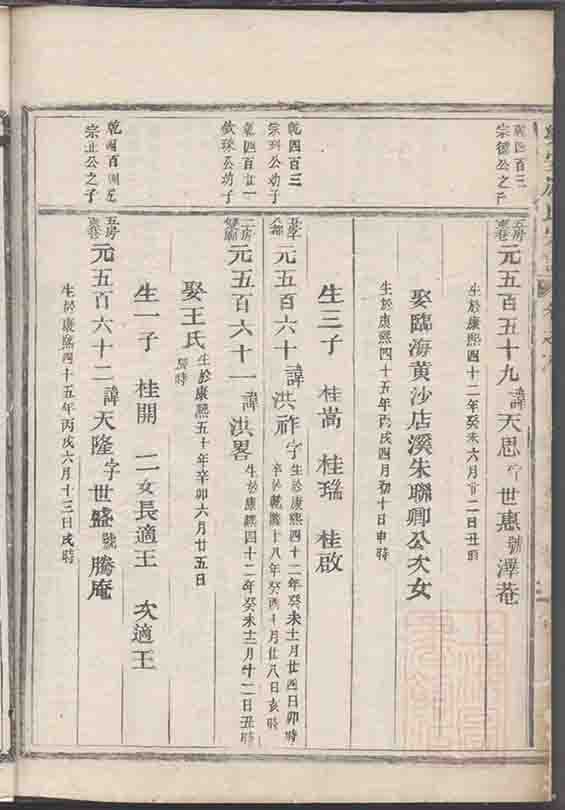 乾四百三
宗德公之子
五房
元五百五十九諱天思字世惠號澤菴
生於康熙四十二年癸未六月廿二日丑時
娶臨海黄沙店溪朱聯卿公次女
生於康熙四十五年丙戌四月初十日申時
生三子 桂嵩 桂瑞 桂啟
乾四百三
宗列公幼子
元五百六十諱洪祚字
生於康熙四十二年癸未十一月廿四日卯時
卒於乾隆十八年癸酉十月廿八日亥時
乾四百廿一
欽珠公幼子
二房
元五百六十一諱洪畧
生於康熙四十二年癸未十二月十二日丑時
娶王氏生於康熙五十年辛卯六月廿五日
時
生一子 桂開 二女長適王 次適王
乾四百
宗正公之子
五房
元五百六十二諱天隆字世盛號勝庵
生於康熙四十五年丙戌六月十三日戌時